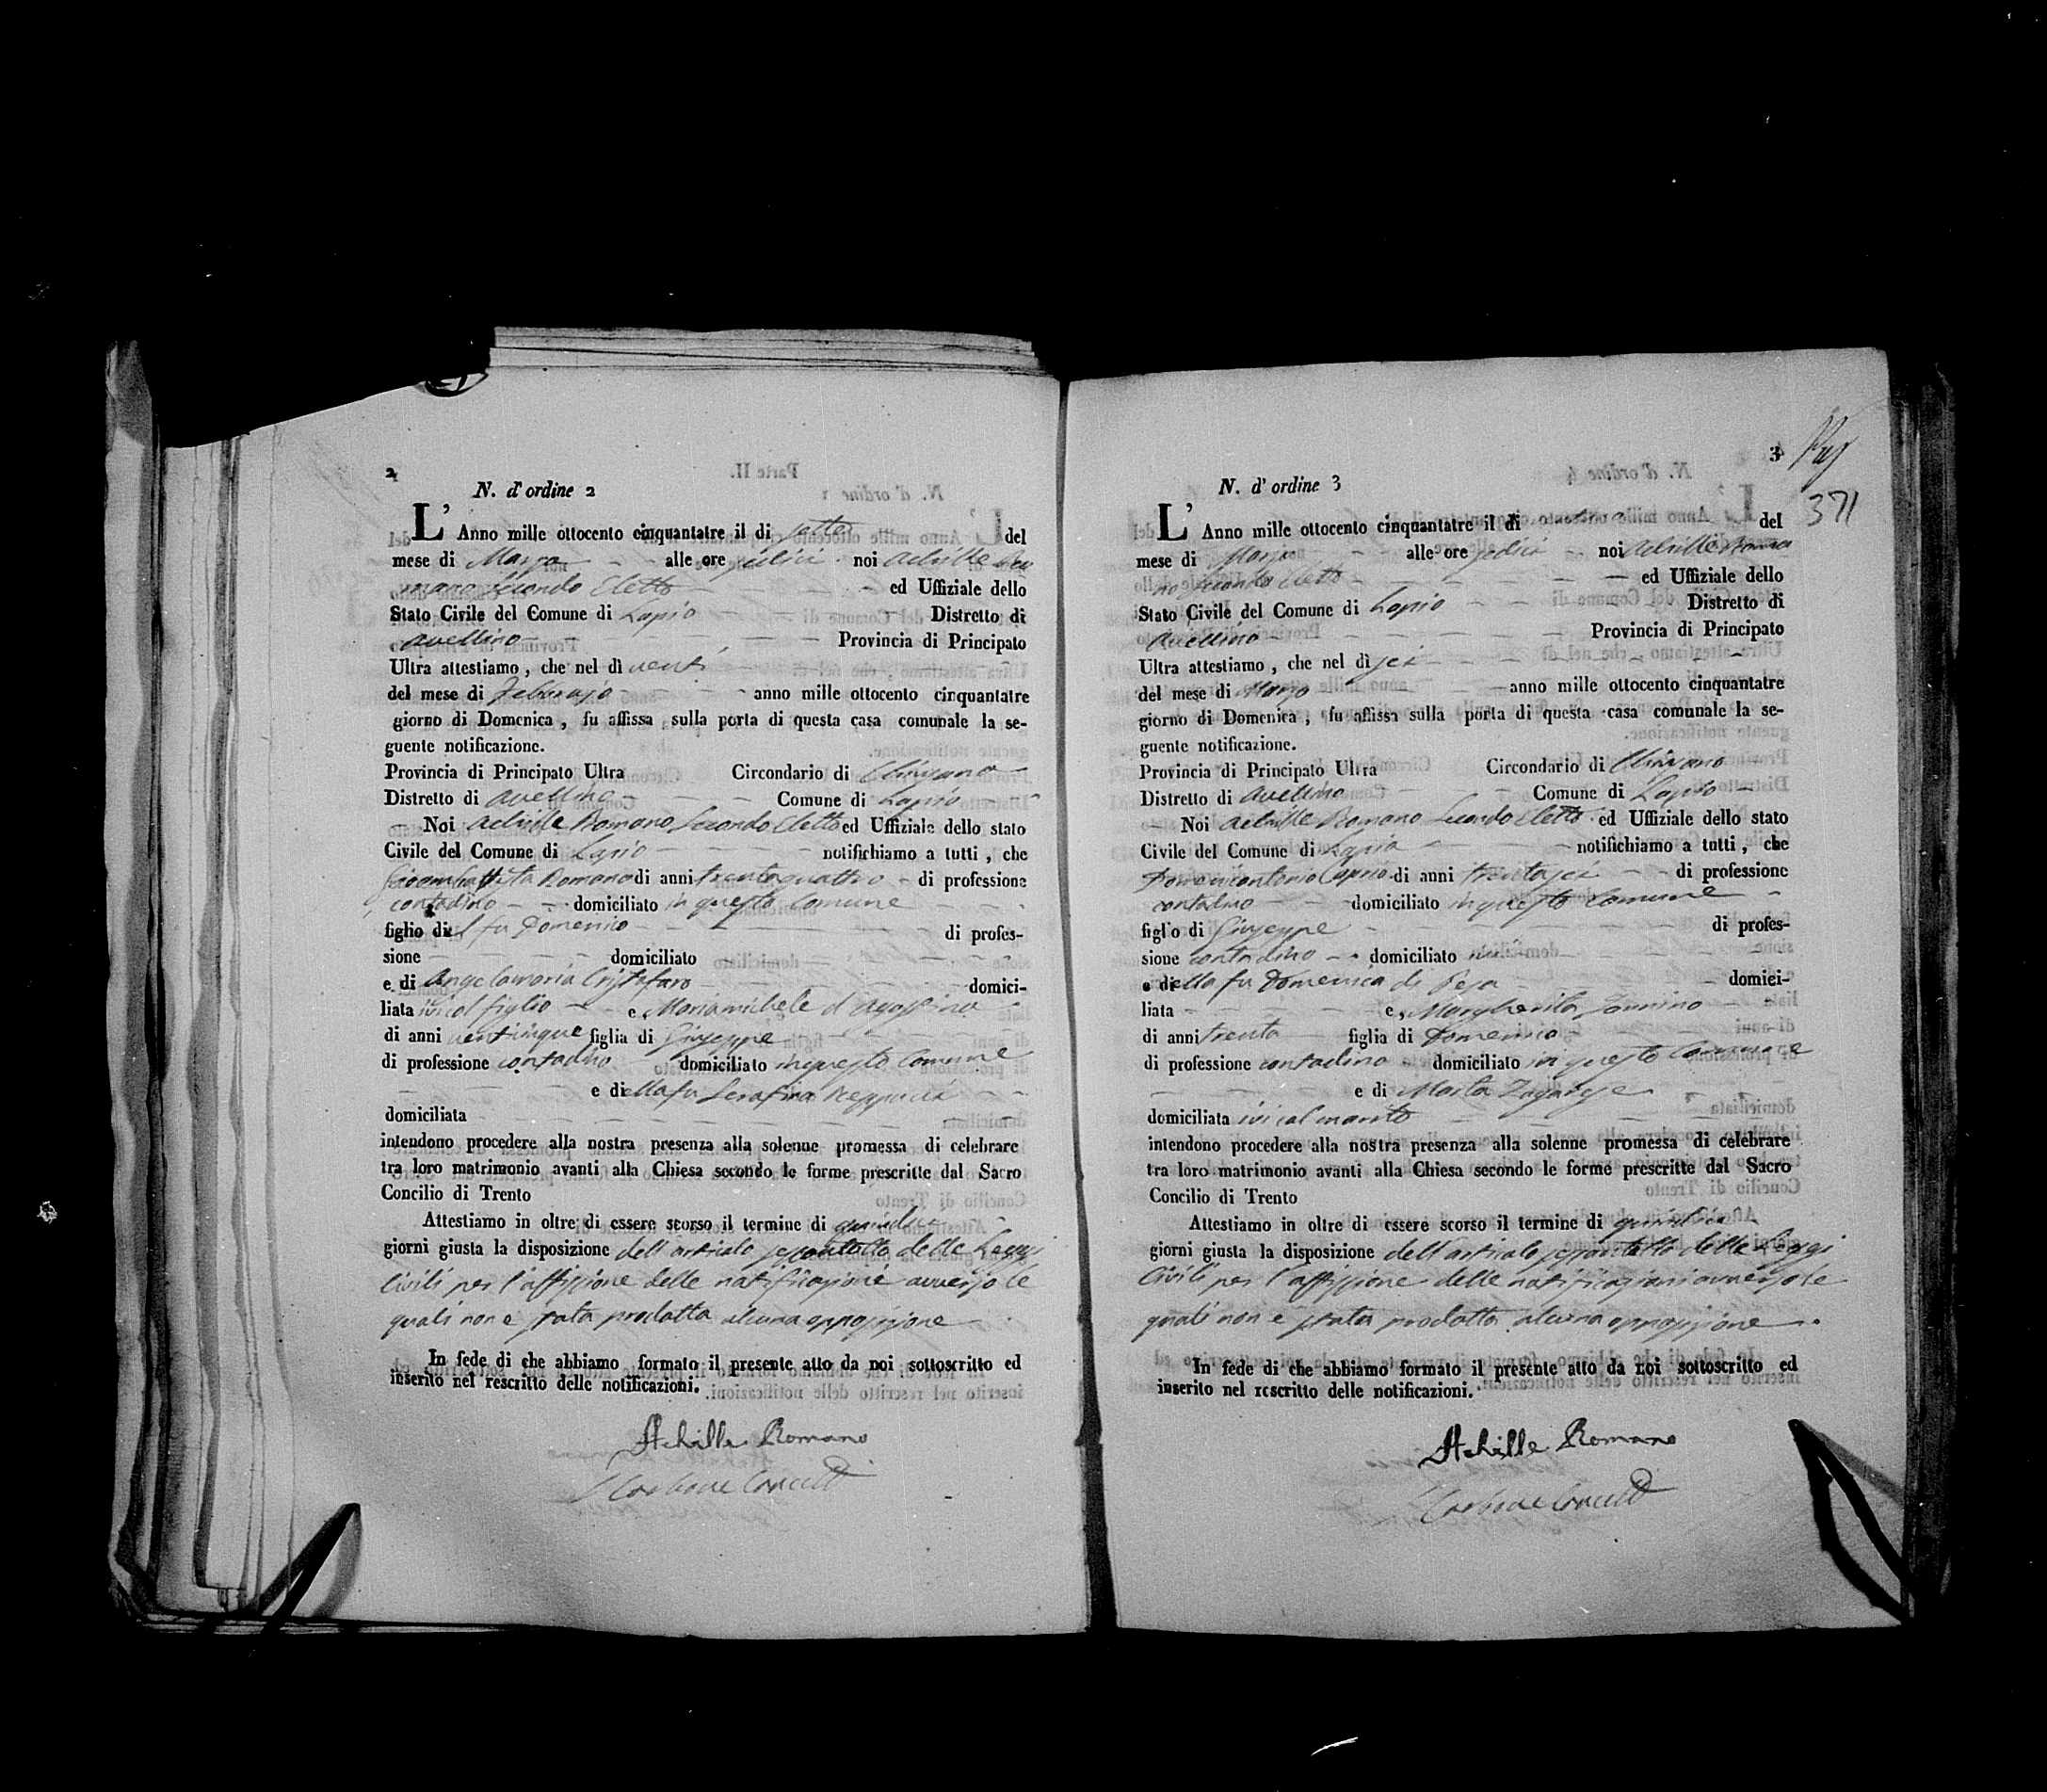 2
N. d'ordine 2
L' Anno mille ottocento cinquantatre il di sette del
mese di Marzo alle ore sedici noi Achille Ro
mano Secondo Eletto ed Uffiziale dello
Stato Civile del Comune di Lapio Distretto di
Avellino Provincia di Principato
Ultra attestiamo, che nel dì venti
del mese di Febbrajo anno mille ottocento cinquantatre
giorno di Domenica, fu affissa sulla porta di questa casa comunale la se-
guente notificazione.
Provincia di Principato Ultra Circondario di Chiusano
Distretto di Avellino Comune di Lapio
Noi Achille Romano Secondo Eletto ed Uffiziale dello stato
Civile del Comune di Lapio notifichiamo a tutti, che
Giovambattista Romano di anni trentaquattro di professione
contadino domiciliato in questo Comune
figlio del fu Domenico di profes-
sione domiciliato
e di Angelamaria Cristofaro domici-
liata ivi col figlio e Mariamichele d'Agostino
di anni venticinque figlia di Giuseppe
di professione contadino domiciliato in questo Comune
e della fu Serafina
domiciliata
intendono procedere alla nostra presenza alla solenne promessa di celebrare
tra loro matrimonio avanti alla Chiesa secondo le forme prescritte dal Sacro
Concilio di Trento
Attestiamo in oltre di essere scorso il termine di quindici
giorni giusta la disposizione dell'articolo sessantotto delle Leggi
Civili per l'affissione delle notificazioni avverso le
quali non è stata prodotta alcuna opposizione
In fede di che abbiamo formato il presente atto da noi sottoscritto ed
inserito nel rescritto delle notificazioni.
Achille Romano
3
371
N. d'ordine 3
L' Anno mille ottocento cinquantatre il di del
mese di Marzo alle ore sedici noi Achille Roma
no Secondo Eletto ed Uffiziale dello
Stato Civile del Comune di Lapio Distretto di
Avellino Provincia di Principato
Ultra attestiamo, che nel dì sei
del mese di Marzo anno mille ottocento cinquantatre
giorno di Domenica, fu affissa sulla porta di questa casa comunale la se-
guente notificazione.
Provincia di Principato Ultra Circondario di Chiusano
Distretto di Avellino Comune di Lapio
Noi Achille Romano Secondo Eletto ed Uffiziale dello stato
Civile del Comune di Lapio notifichiamo a tutti, che
Domenicantonio Caprio di anni trentasei di professione
contadino domiciliato in questo Comune
figlio di Giuseppe di profes-
sione contadino domiciliato ivi
e della fu Domenica de Pesa domici-
liata e, Margherita Iannino
di anni trenta figlia di Domenico
di professione contadino domiciliato in questo Comune
e di Marta Zagarese
domiciliata ivi col marito
intendono procedere alla nostra presenza alla solenne promessa di celebrare
tra loro matrimonio avanti alla Chiesa secondo le forme prescritte dal Sacro
Concilio di Trento
Attestiamo in oltre di essere scorso il termine di quindici
giorni giusta la disposizione dell'articolo sessantotto delle Leggi
Civili per l'affissione delle notificazioni avverso le
quali non è stata prodotta alcuna opposizione
In fede di che abbiamo formato il presente atto da noi sottoscritto ed
inserito nel rescritto delle notificazioni.
Achille Romano